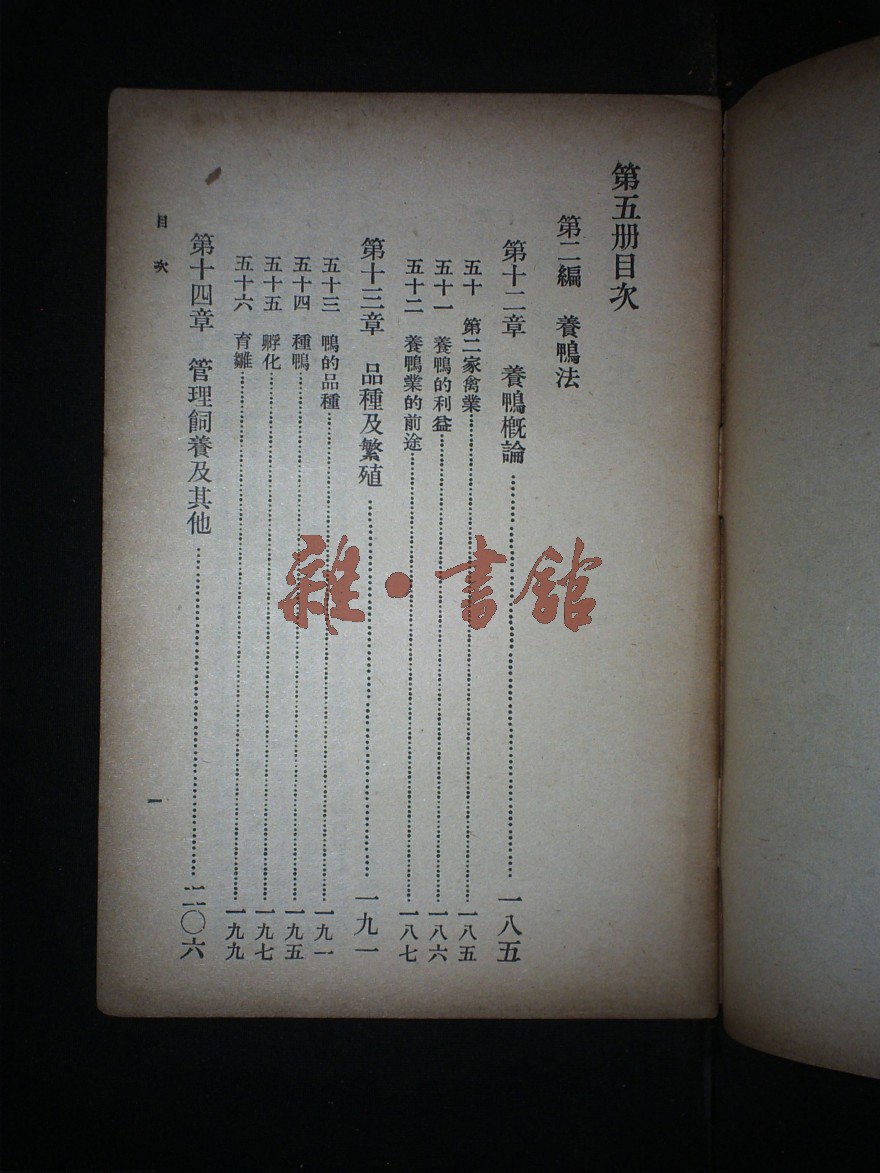 第五册目次
第二編　養鴨法
第十二章　養鴨槪論……一八五
五十　第二家禽業……一八五
五十一　養鴨的利益……一八六
五十二　養鴨業的前途……一八七
第十三章　品種及繁殖……一九一
五十三　鴨的品種……一九一
五十四　種鴨……一九五
五十五　孵化……一九七
五十六　育雛……一九九
第十四章　管理飼養及其他……二〇六
目次
一
雜·書館